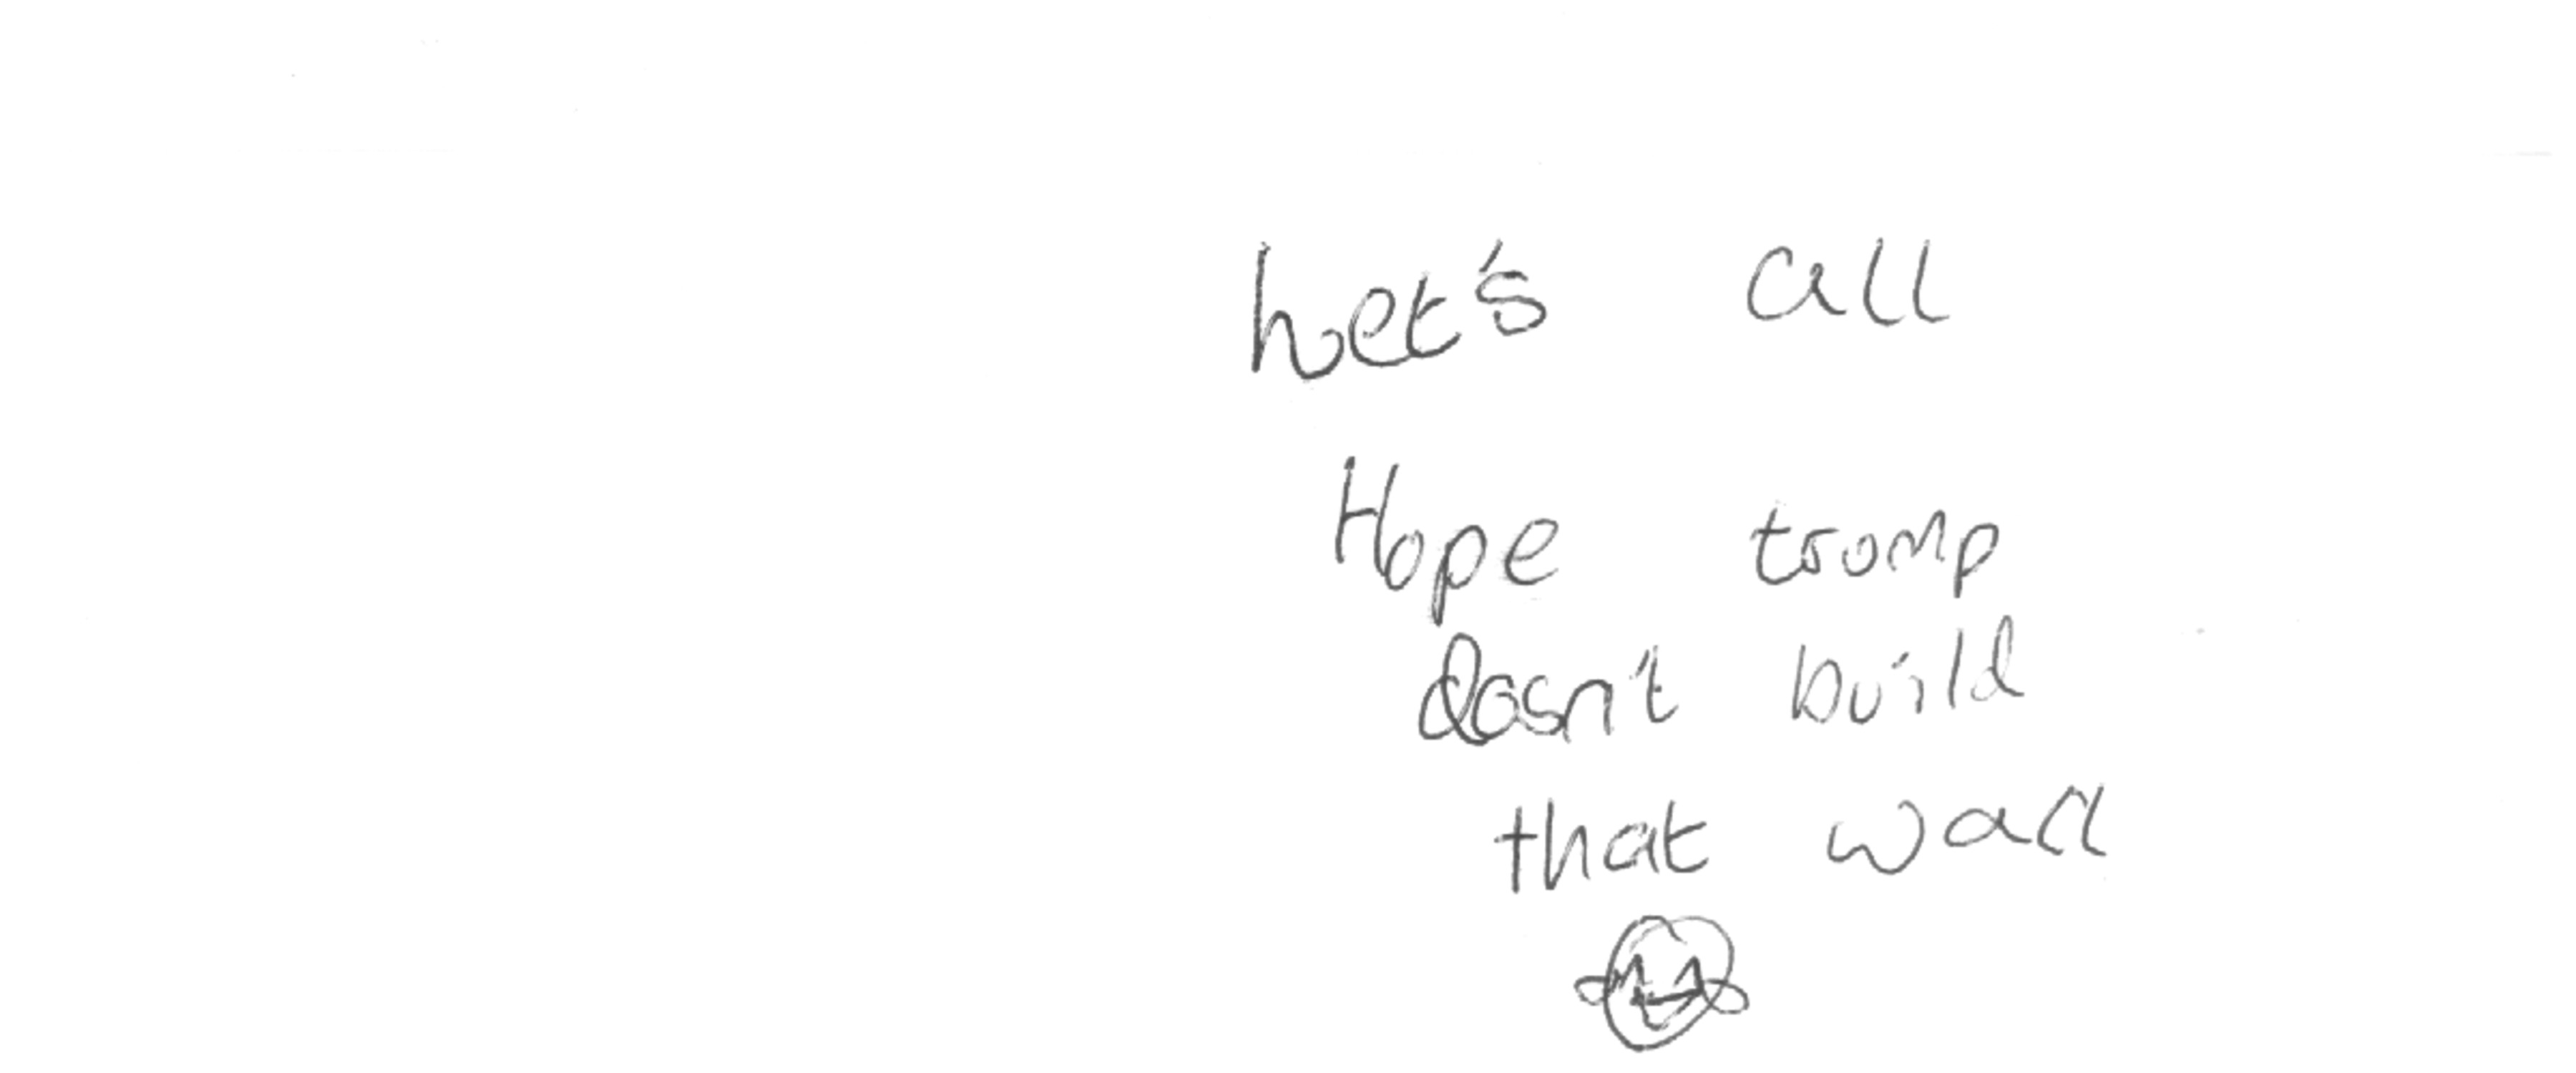 Let's all
Hope tromp
dosn't build
that wall